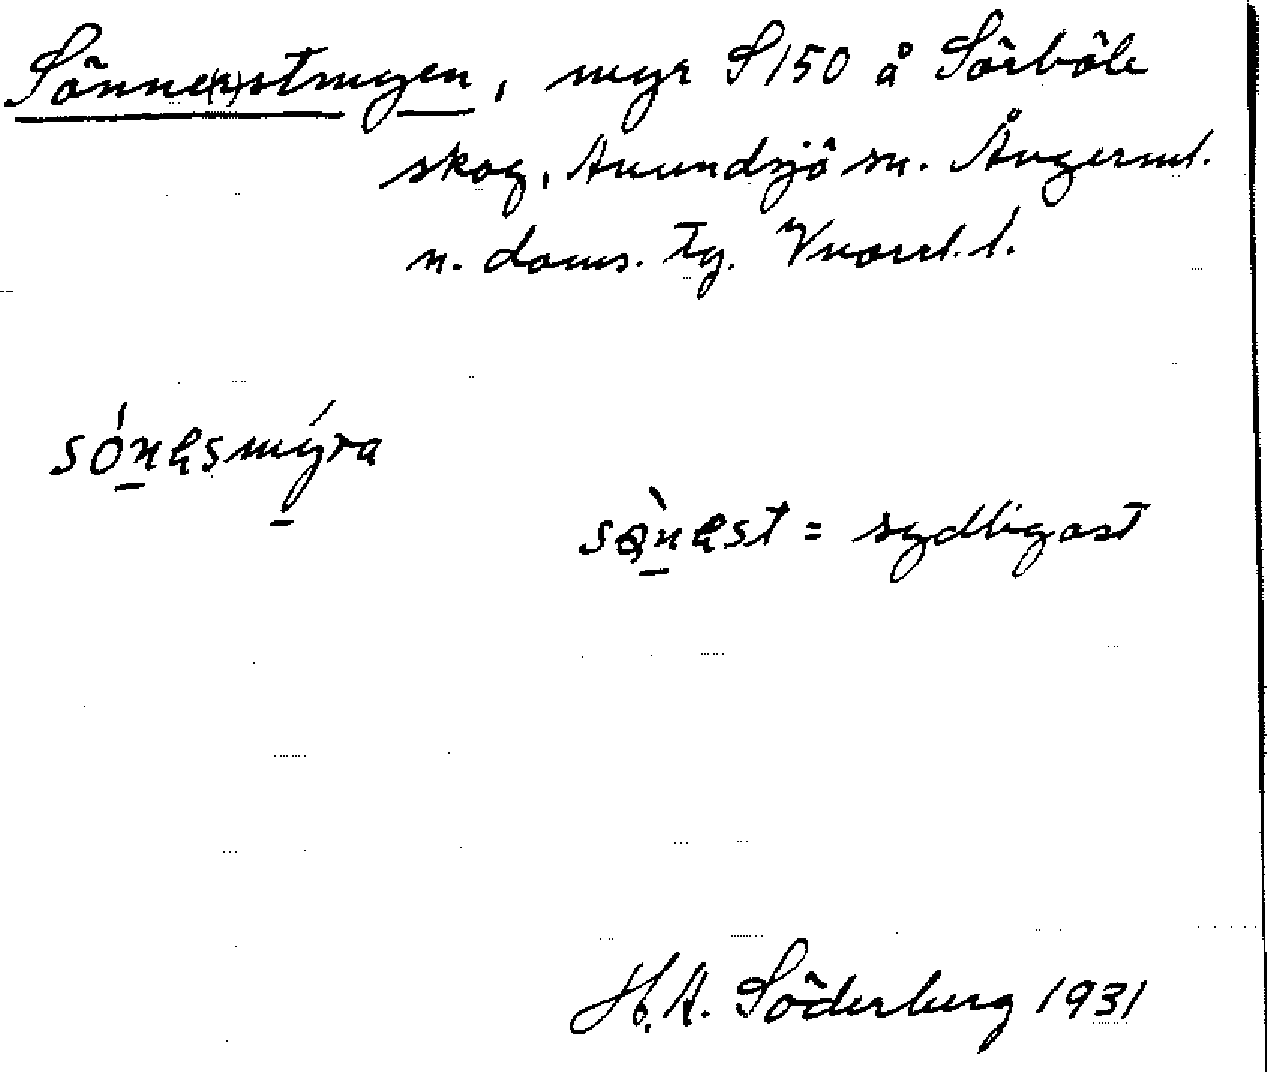 Sönne(r)stmyren, myr S150 å Sörböle
skog, Anundsjö sn. Ångerml.
n. doms. tg. Vnorrl. l.
sónesmýra
sònest = sydligast
H. A. Söderberg 1931